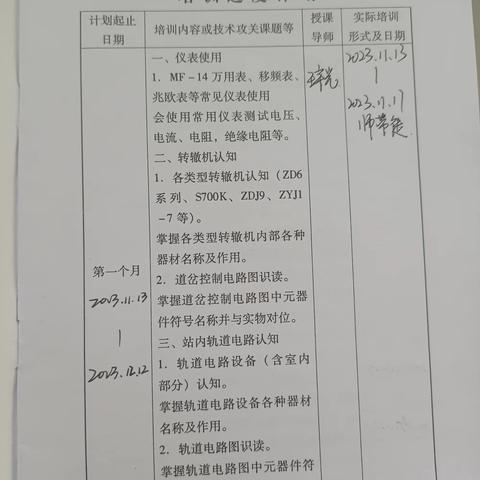 计划起止
日期
培训内容或技术攻关课题等
授课
导师
实际培训
形式及日期
一、仪表使用
1. MF-14 万用表、移频表、
兆欧表等常见仪表使用
会使用常用仪表测试电压、
电流、电阻，绝缘电阻等。
二、转辙机认知
1. 各类型转辙机认知（ZD6
系列、S700K、ZDJ9、ZYJ1
-7 等）。
掌握各类型转辙机内部各种
器材名称及作用。
2. 道岔控制电路图识读。
掌握道岔控制电路图中元器
件符号名称并与实物对位。
三、站内轨道电路认知
1. 轨道电路设备（含室内
部分）认知。
掌握轨道电路设备各种器材
名称及作用。
2. 轨道电路图识读。
掌握轨道电路图中元器件符
第一个月
2023.11.13
|
2023.12.12
2023.11.13
|
2023.11.17
师带徒